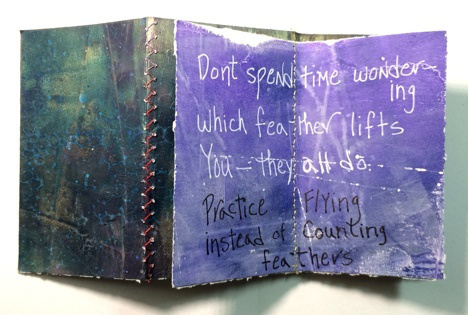 Dont spend time wonder-
ing
which feather lifts
You — they all do.
Practice Flying
instead of Counting
feathers